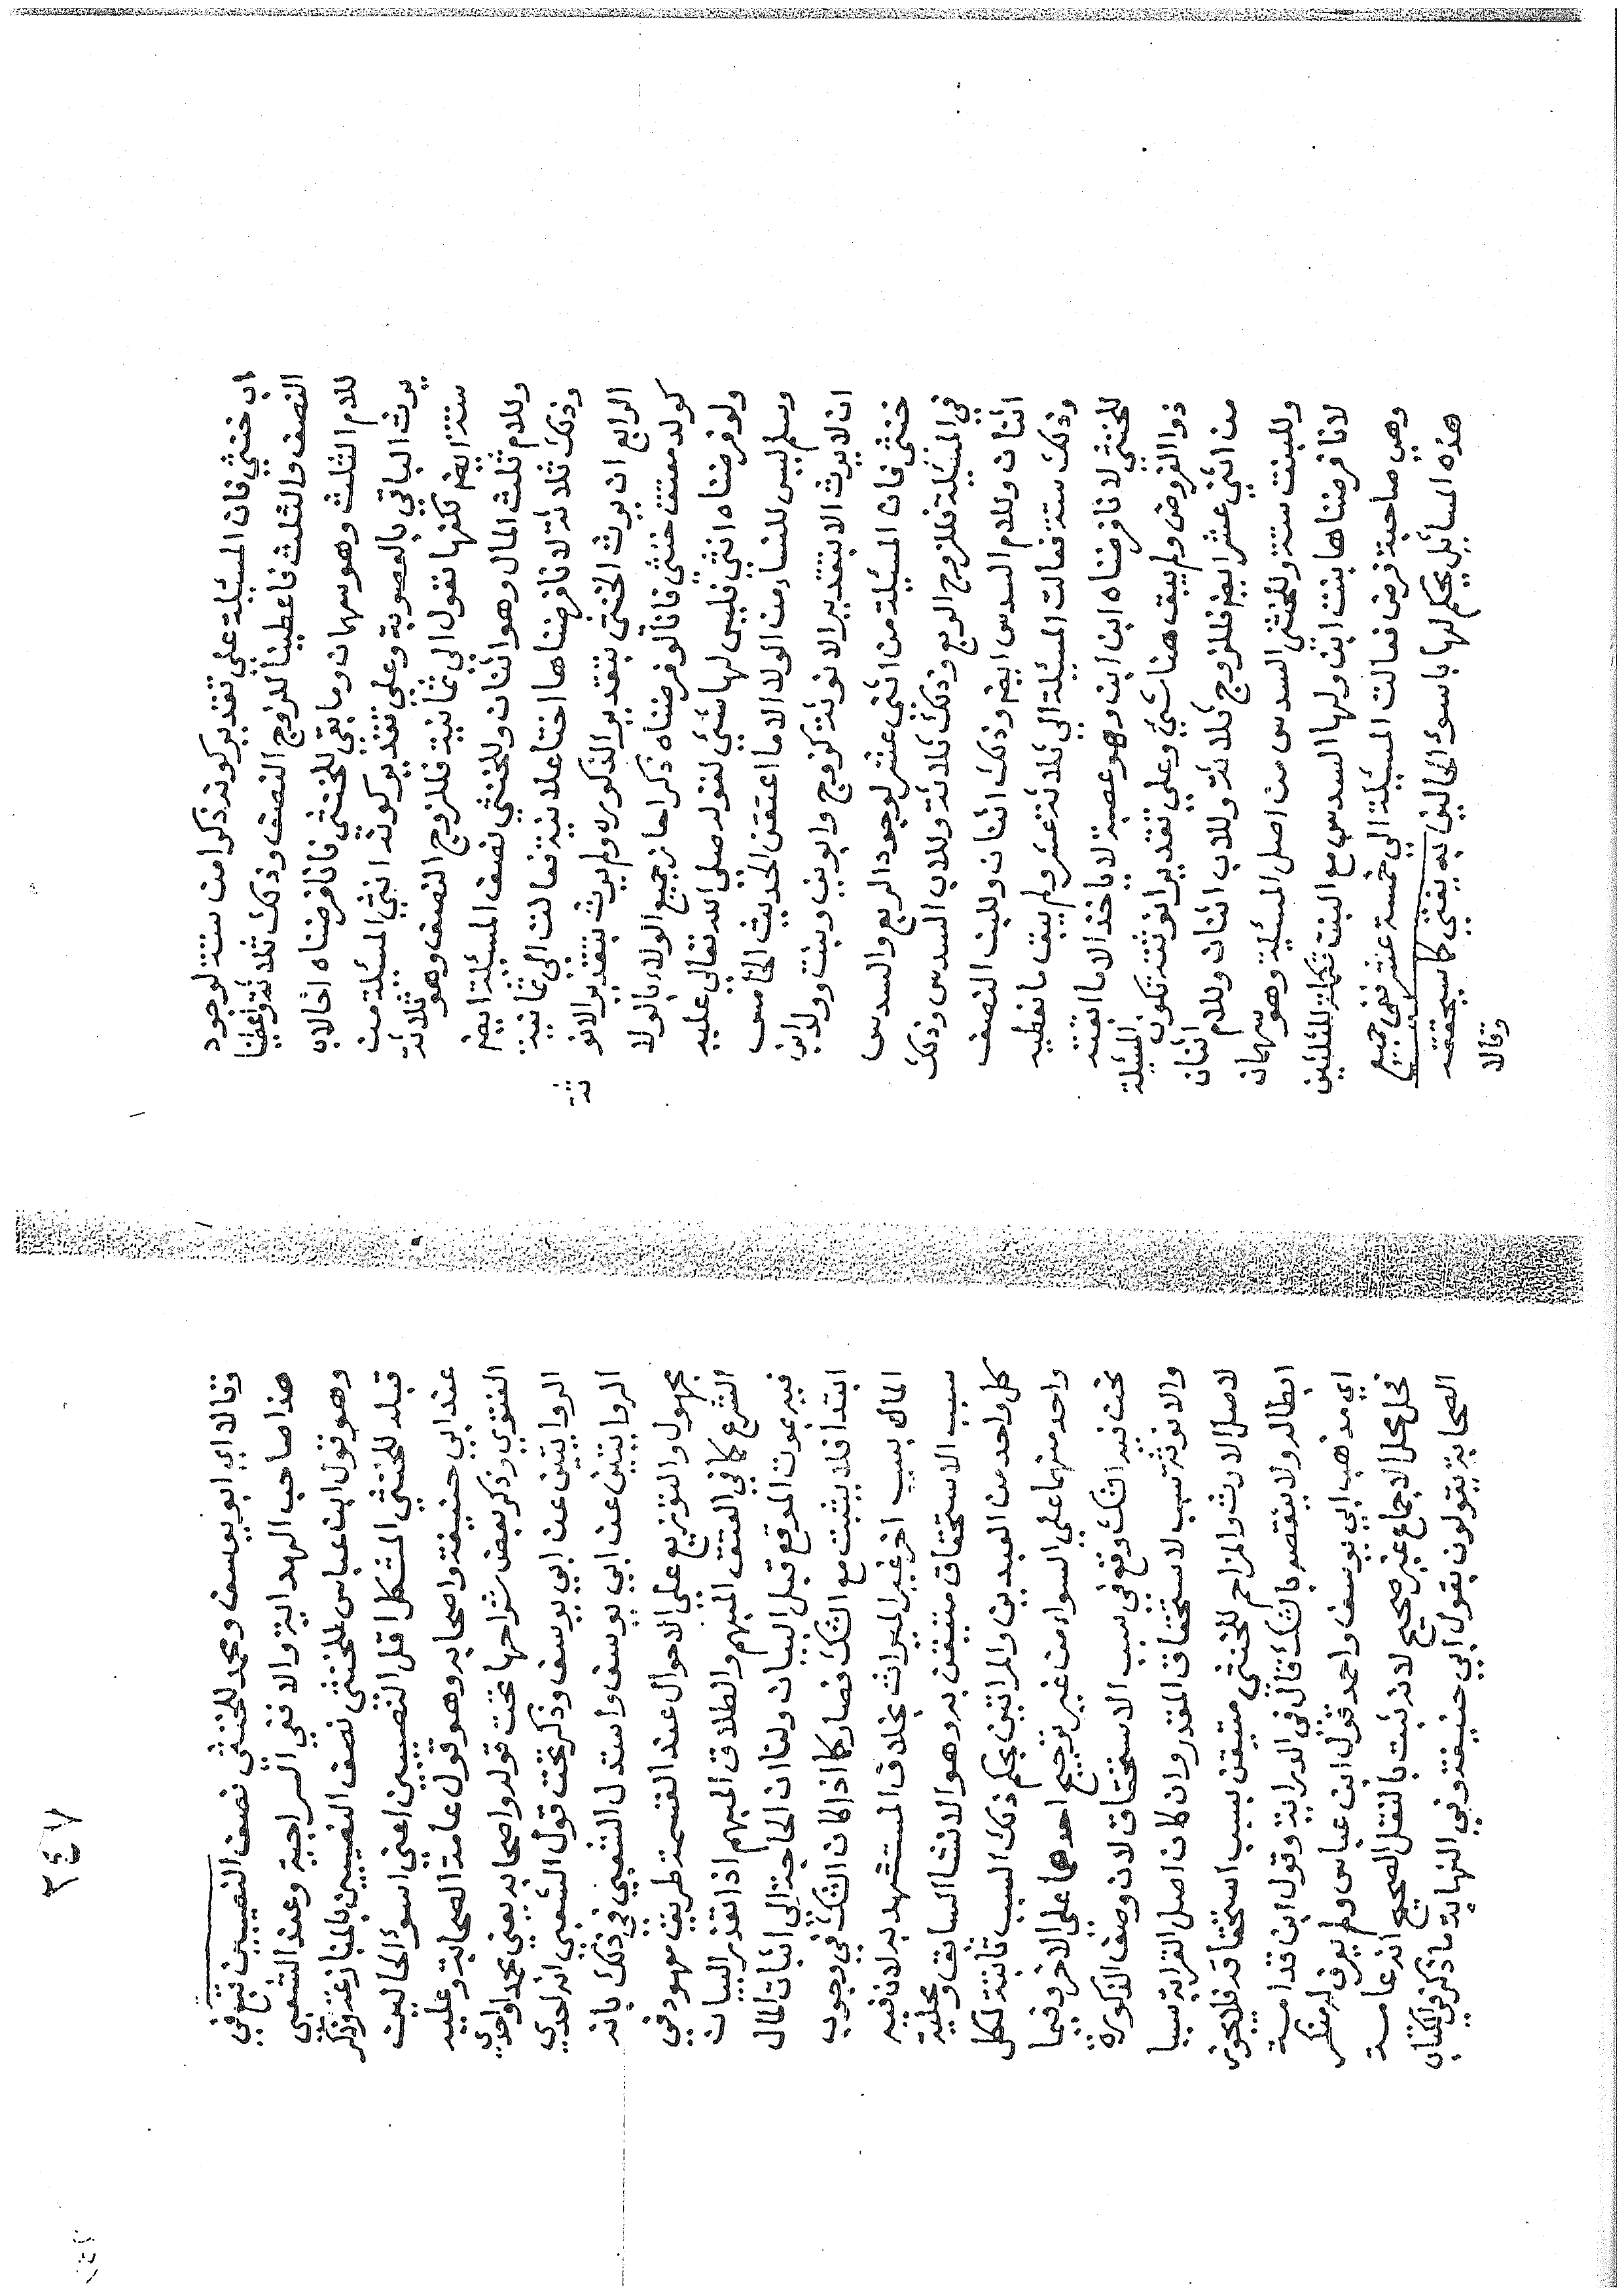 اب خنثي فان المسئلة علي تقدير كونه ذكرا من ستة لوجود
النصف والثلث فاعطينا للزوج النصف وذلك ثلاثة واعطينا
للام الثلث وهو سهمان وما بقي للخنثي فانا فرضناه اخا لاب
يرث الباقي بالعصوبة وعلي تقدير كونه انثي المسئلة من
ستة ايضا لكنها تعول الي ثمانية فللزوج النصف وهو ثلاثة
وللام ثلث المال وهو اثنان وللخنثي نصف المسئلة ايضا
وذلك ثلاثة لانا فرضناها اختا علانية فعالت الي ثمانية
الرابع ان يرث الخنثي بتقدير الذكوره ولم يرث بتقدير الانو
ثة
كولد معتق خنثي فانا لو فرضناه ذكرا حاز جميع الولاء بالولا
ولو فرضناه انثي فليس لها شئ لقوله صلي الله تعالي عليه
وسلم ليس للنساء من الولاء الا ما اعتقن الحديث الخامس
ان لا يرث الا بتقدير الانوثة كزوج وابوين وبنت وولد ابن
خنثي فان المسئلة من اثني عشر لوجود الربع والسدس
في المسئلة فللزوج الربع وذلك ثلاثة وللاب السدس وذلك
اثنان وللام السدس ايضا وذلك اثنان وللبنت النصف
وذلك ستة فعالت المسئلة الي ثلاثة عشر ولم يبق ما نعطيه
للخنثي لانا فرضناه ابن ابن وهو عصبة لا ياخذ الا ما ابقته
ذوا الفروض ولم يبق هنا شئ وعلي تقدير انوثته تكون المسئلة
من اثني عشر ايضا فللزوج ثلاثة وللاب اثنان وللام اثنان
وللبنت ستة وللخنثي السدس من اصل المسئلة وهو سهمان
لانا فرضناها بنت ابن ولها السدس مع البنت تكملة للثلثين
وهي صاحبة فرض فعالت المسئلة الي خمسة عشر ففي جميع
هذه المسائل يحكم لها باسوء الحالين به يفتي كما سيحققه
وقالا
٣٤٧
وقالا اي ابو يوسف ومحمد للخنثي نصف النصيبين تبع في
هذا صاحب الهداية والا ففي السراجية وعند الشعبي
وهو قول ابن عباس للخنثي نصف النصيبين بالمنازعة وذكر
قبله للخنثي المشكل اقل النصيبين اعني اسوء الحالين
عند ابي حنيفة واصحابه وهو قول عامة الصحابة وعليه
الفتوي وذكر بعض شراحها تحت قوله واصحابه يعني محمدا واحدي
الروايتين عن ابي يوسف وذكر تحت قول الشعبي انه احدي
الروايتين عن ابي يوسف واستدل الشعبي في ذلك بانه
مجهول والتوزيع علي الاحوال عند القسمة طريق معهود في
الشرع كما في العتق المبهم والطلاق المبهم اذا تعذر البيان
فيه بموت الموقع قبل البيان ولنا ان الحاجة الي اثبات المال
ابتدا فلا يثبت مع الشك فصار كما اذا كان الشك في وجوب
المال بسبب اخر غير الميراث بخلاف المستشهد به لان فيه
سبب الاستحقاق متيقن به وهو الانشا السابق ومحلية
كل واحد من العبدين والمراتين بحكم ذلك السبب ثابتة لكل
واحد منهما علي السواء من غير ترجيح احدهما علي الاخر وفيما
نحن فيه الشك وقع في سبب الاستحقاق لان وصف الذكورة
والانوثة سبب لاستحقاق المقدر وان كان اصل القرابة سببا
لاصل الارث والمزاحم للخنثي متيقن بسبب استحقاقه فلا يجوز
ابطاله ولا ينقصه بالشك قال في الدراية وقول ابن قدامة
اي مذهب ابي يوسف واحمد قول ابن عباس ولم يعرف له منكر
فحل محل الاجماع غير صحيح لانه ثبت بالنقل الصحيح انه عامة
الصحابة يقولون بقول ابي حنيفة وفي النهاية ما ذكر في الكتاب